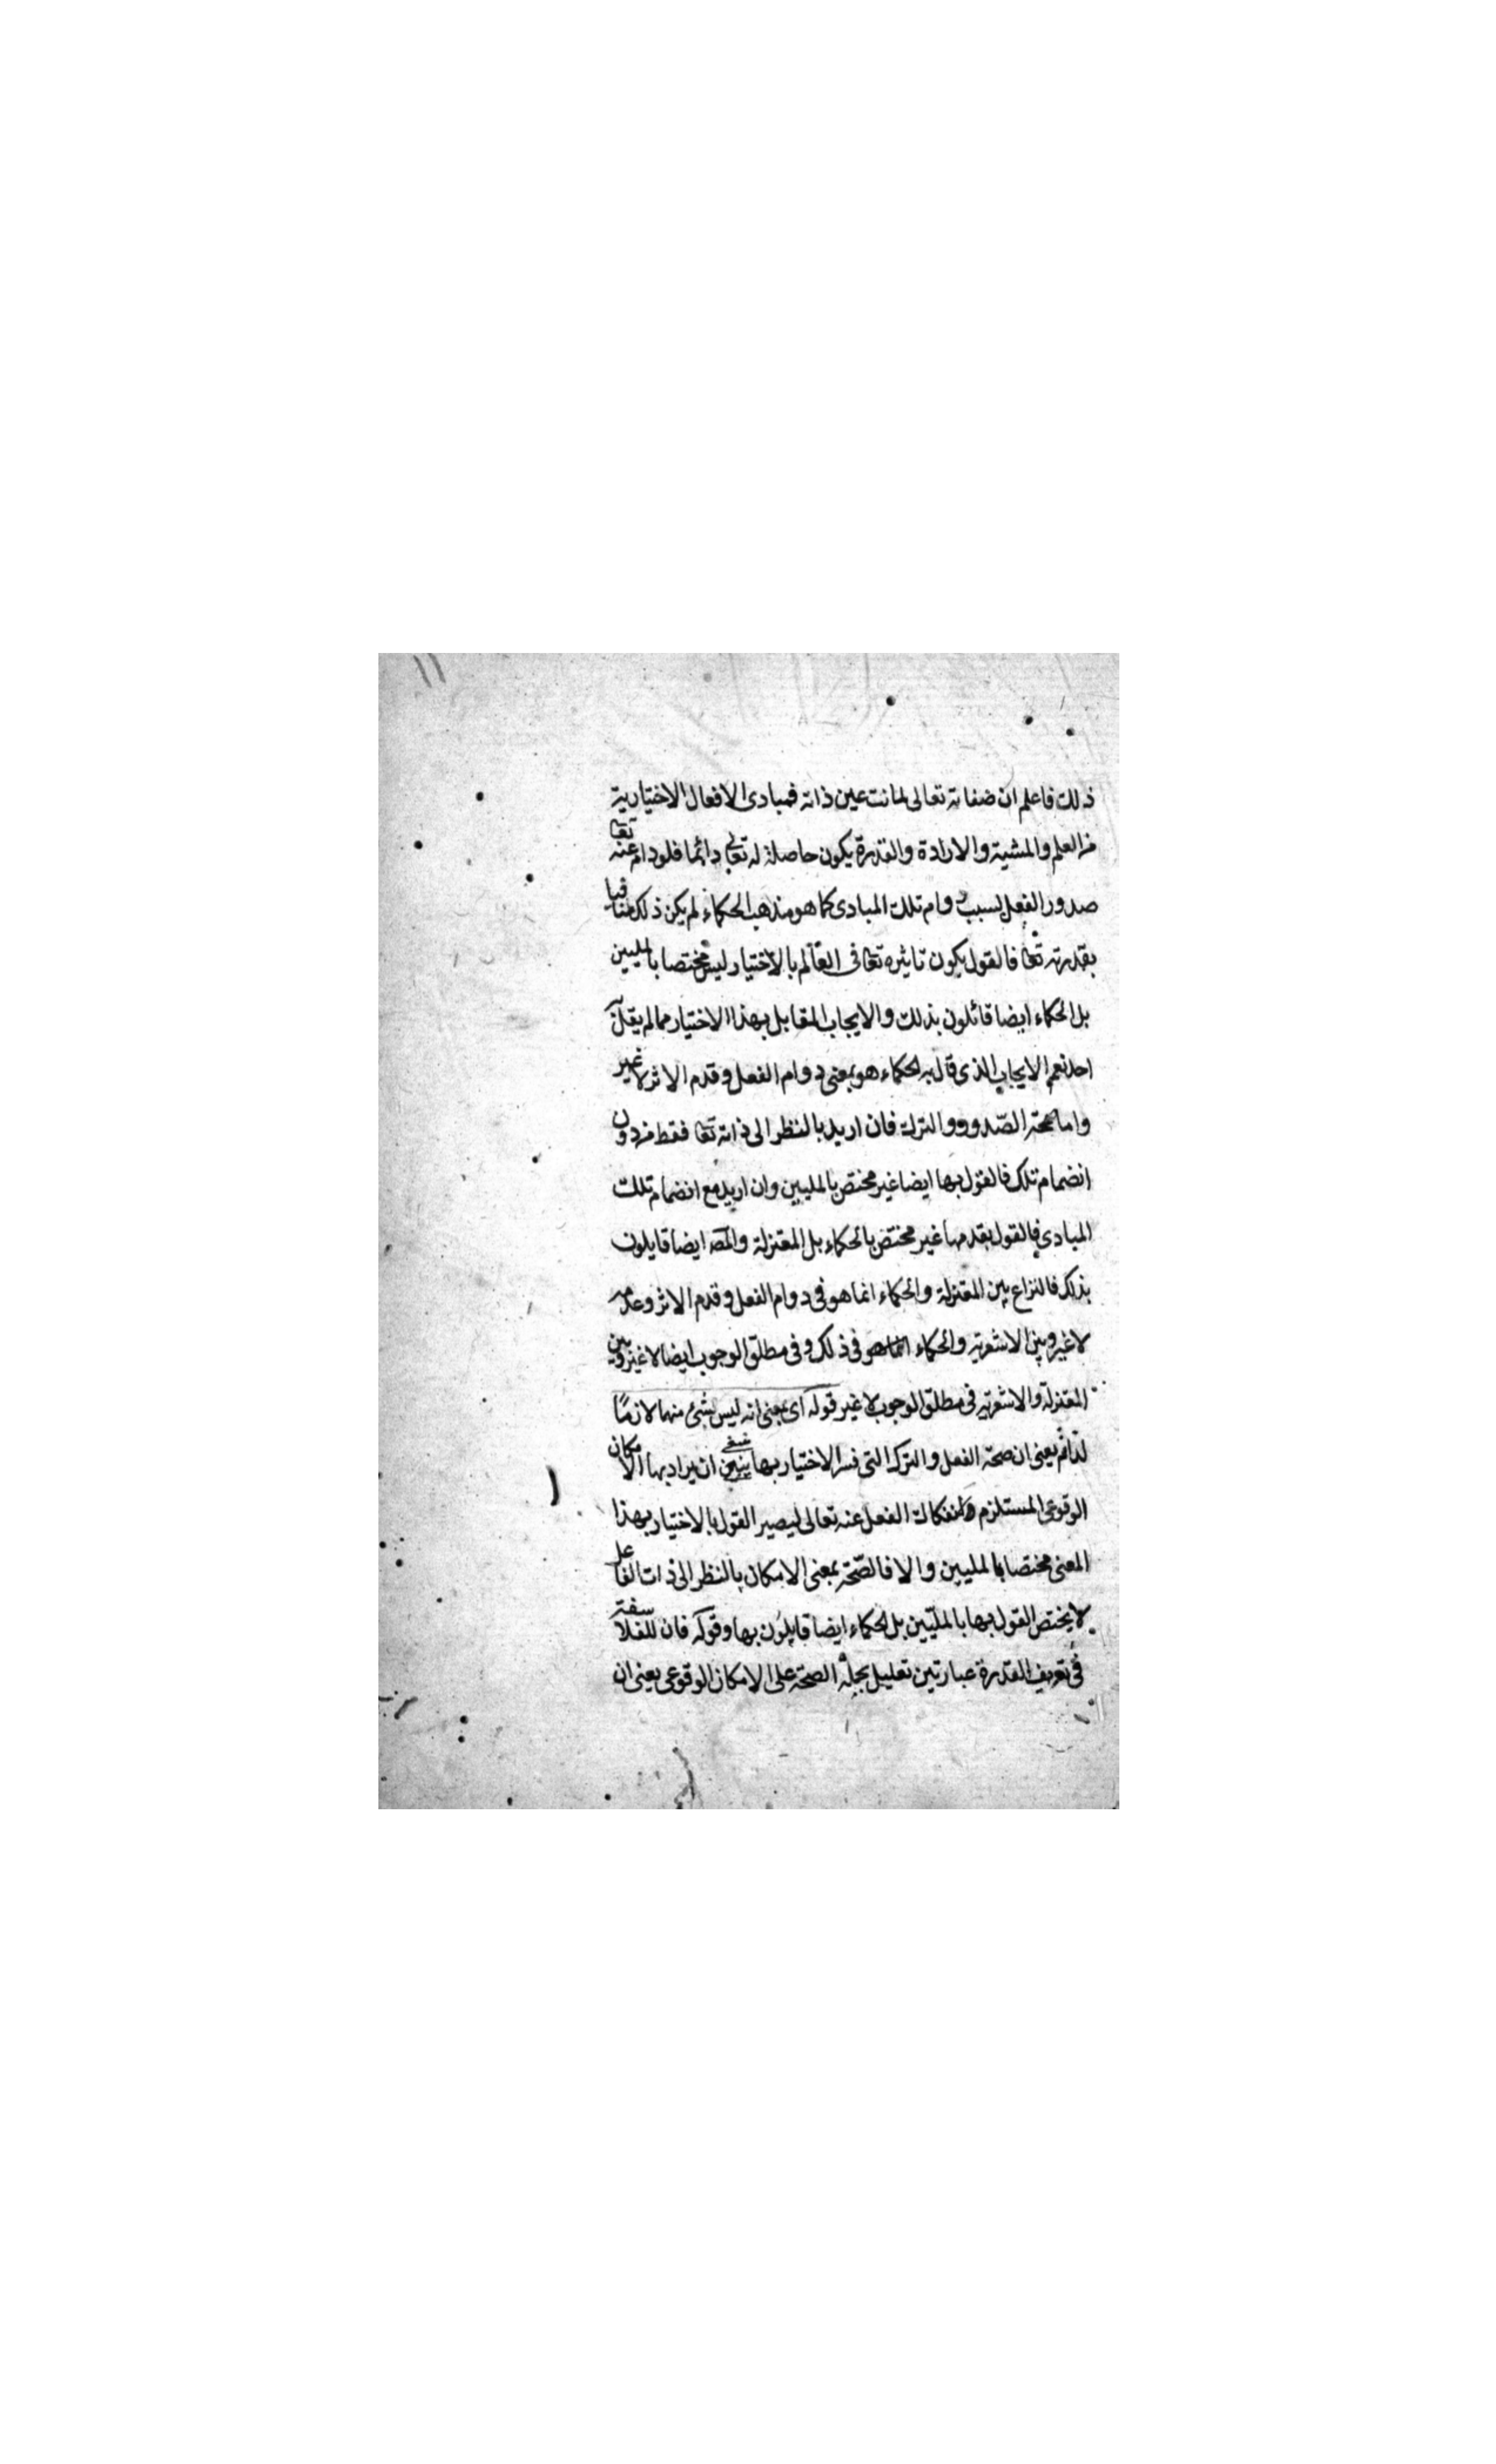 ١١
ذلك فاعلم ان صفاته تعالى لما كانت عين ذاته فمبادى الافعال الاختيارية
من العلم والمشية والارادة والقدرة يكون حاصلة له تعالى دائما فلو دام عنه تعا
صدور الفعل بسبب دوام تلك المبادى كما هو مذهب الحكماء لم يكن ذلك منافيا
بقدرته تعا فالقول بكون تاثيره تعا فى العالم بالاختيار ليس مختصا بالمليين
بل الحكماء ايضا قائلون بذلك والايجاب المقابل بهذا الاختيار مما لم يقل به
احد نعم الايجاب الذى قال به الحكماء هو بمعنى دوام الفعل وقدم الاثر لا غير
واما صحة الصدور والترك فان اريد بالنظر الى ذاته تعا فقط من دون
انضمام تلك فالقول بها ايضا غير مختص بالمليين وان اريد مع انضمام تلك
المبادى فالقول بعدمها غير مختص بالحكماء بل المعتزلة والمص ايضا قايلون
بذلك فالنزاع بين المعتزلة والحكماء انما هو فى دوام الفعل وقدم الاثر وعدمه
لا غير وبين الاشعرية والحكماء انما هو فى ذلك وفى مطلق الوجوب ايضا لا غير وبين
المعتزلة والاشعرية فى مطلق الوجوب لا غير قوله اى بمعنى انه ليس شئ منهما لازمًا
لذاته يعنى ان صحة الفعل والترك التى فسر الاختيار بها ينبغى ان يراد بها الامكان
الوقوعى المستلزم لانفكاك الفعل عنه تعالى ليصير القول بالاختيار بهذا
المعنى مختصا بالمليين والا فالصحة بمعنى الامكان بالنظر الى ذات الفاعل
لا يختص القول بها بالمليّين بل الحكماء ايضا قايلون بها وقوله فان للفلاسفة
فى تعريف القدرة عبارتين تعليل لحمله الصحة على الامكان الوقوعى يعنى ان